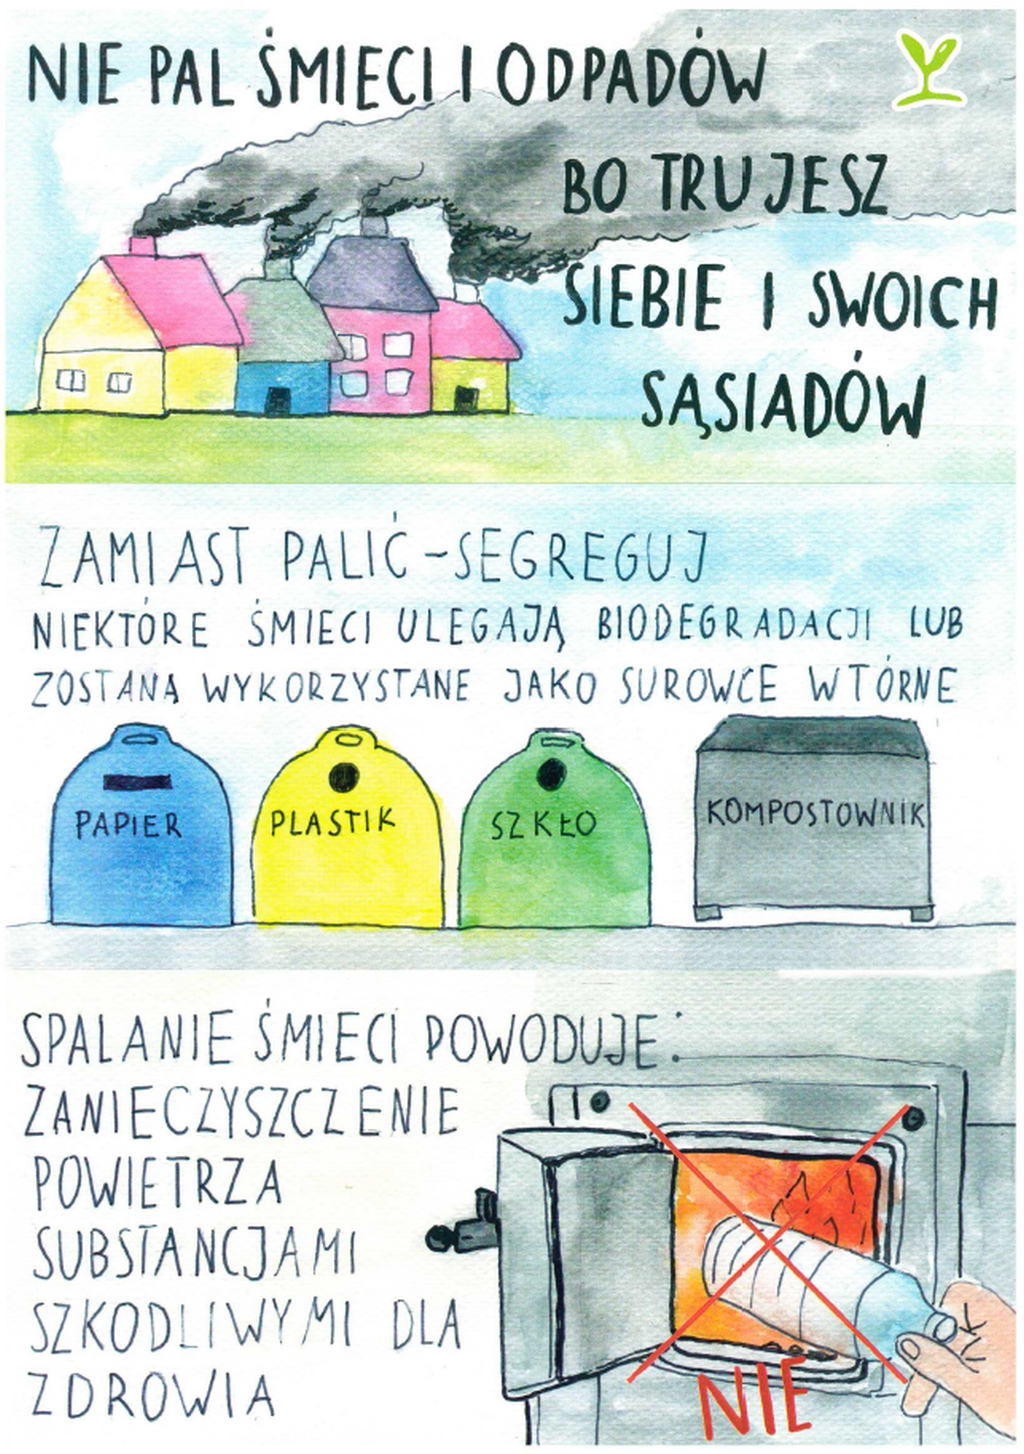 NIE PAL ŚMIECI I ODPADÓW
BO TRUJESZ
SIEBIE I SWOICH
SĄSIADÓW
ZAMIAST PALIĆ-SEGREGUJ
NIEKTÓRE ŚMIECI ULEGAJĄ BIODEGRADACJI LUB
ZOSTANĄ WYKORZYSTANE JAKO SUROWCE WTÓRNE
PAPIER
PLASTIK
SZKŁO
KOMPOSTOWNIK
SPALANIE ŚMIECI POWODUJE:
ZANIECZYSZCZENIE
POWIETRZA
SUBSTANCJAMI
SZKODLIWYMI DLA
ZDROWIA
NIE